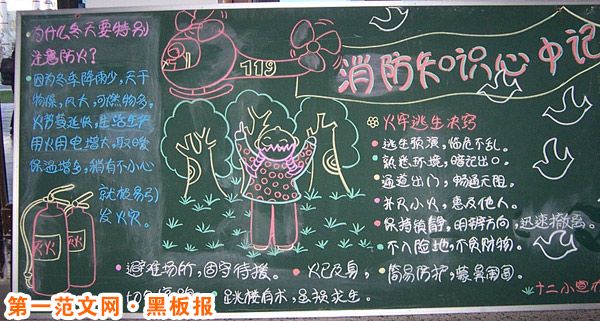 为什么冬天要特别
注意防火?
·因为冬季降雨少,天干
物燥,风大,可燃物多,
火势蔓延快,生活生产
用火用电增大,取暖
保温增多,稍有不小心
就极易引
发火灾。
灭火
灭火
119
消防知识心中记
火灾逃生决窍
·逃生预演,临危不乱。
·熟悉环境,暗记出口。
·通道出口,畅通无阻。
·扑灭小火,惠及他人。
·保持镇静,明辨方向,迅速撤离。
·不入险地,不贪财物。
·简易防护,蒙鼻匍匐。
·避难场所,固守待援。
·火已及身,
·跳楼有术,虽损求生。
十二小宣
第一范文网·黑板报